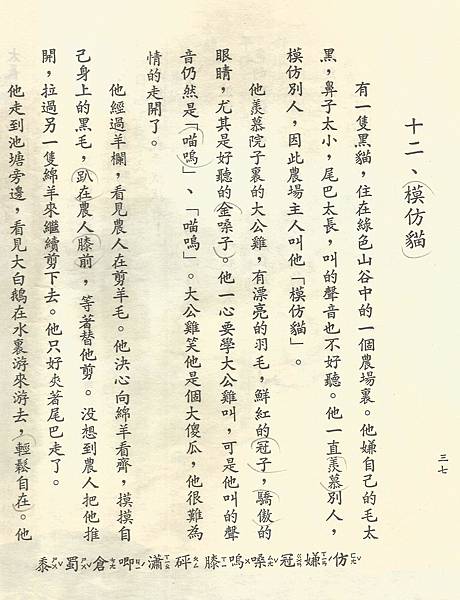 三七
十二、模仿貓
有一隻黑貓,住在綠色山谷中的一個農場裏。他嫌自己的毛太
黑,鼻子太小,尾巴太長,叫的聲音也不好聽。他一直羨慕別人,
模仿別人,因此農場主人叫他「模仿貓」。
他羨慕院子裏的大公雞,有漂亮的羽毛,鮮紅的冠子,驕傲的
眼睛,尤其是好聽的金嗓子。他一心要學大公雞叫,可是他叫的聲
音仍然是「喵嗚」、「喵嗚」。大公雞笑他是個大傻瓜,他很難為
情的走開了。
他經過羊欄,看見農人在剪羊毛。他決心向綿羊看齊,摸摸自
己身上的黑毛,趴在農人膝前,等著替他剪。沒想到農人把他推
開,拉過另一隻綿羊來繼續剪下去。他只好夾著尾巴走了。
他走到池塘旁邊,看見大白鵝在水裏游來游去,輕鬆自在。他
仿嫌冠嗓嗚膝砰瀟唧倉蜀黍